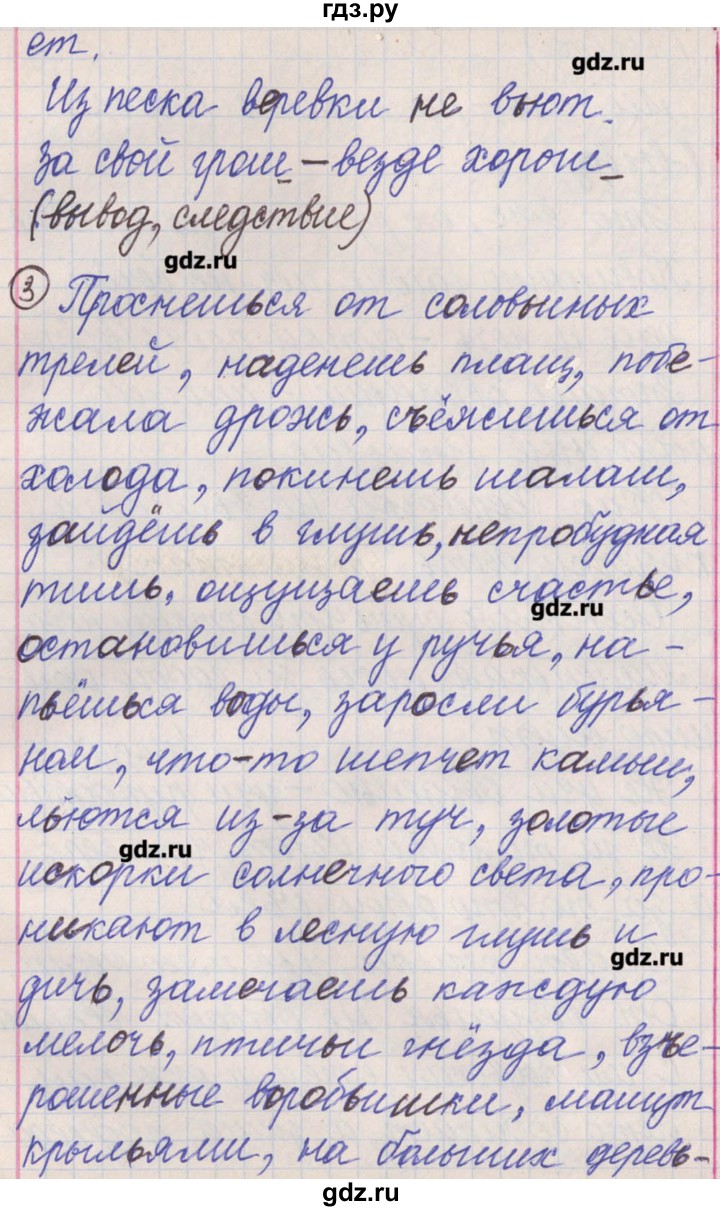 гдз.ру
ет.
gdz.ru
Из песка верёвки не вьют.
За свой грош – везде хорош
(вывод, следствие)
gdz.ru
3 Проснешься от соловьиных
трелей, наденешь плащ, побе-
жала дрожь, съёжишься от
холода, покинешь шалаш,
зайдёшь в глушь, непробудная
тишь, ощущаешь счастье,
gdz.ru
остановишься у ручья, на-
пьёшься воды, заросли бурья-
ном, что-то шепчет камыш,
льются из-за туч, золотые
gdz.ru
искорки солнечного света, про-
никают в лесную глушь и
gdz.ru
дичь, замечаешь каждую
мелочь, птичьи гнёзда, взъе-
рошенные воробьишки, машут
крыльями, на больших деревь-
gdz.ru